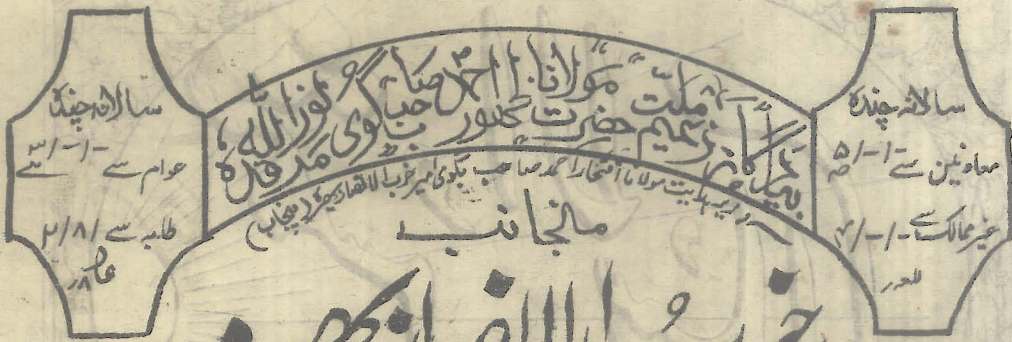 سالانہ چندہ
معاونین سے -/-/۵
غیر ممالک سے -/-/۴
بیادگار زعیم ملت حضرت مولانا ظہور احمد صاحب بگوی نور اللہ مرقدہ
زیر ہدایت مولانا افتخار احمد صاحب بگوی امیر حزب الانصار بھیرہ (پنجاب)
منجانب
حزب الانصار بھیرہ
سالانہ چندہ
عوام سے -/-/۳
طلبہ سے ۲/۸/